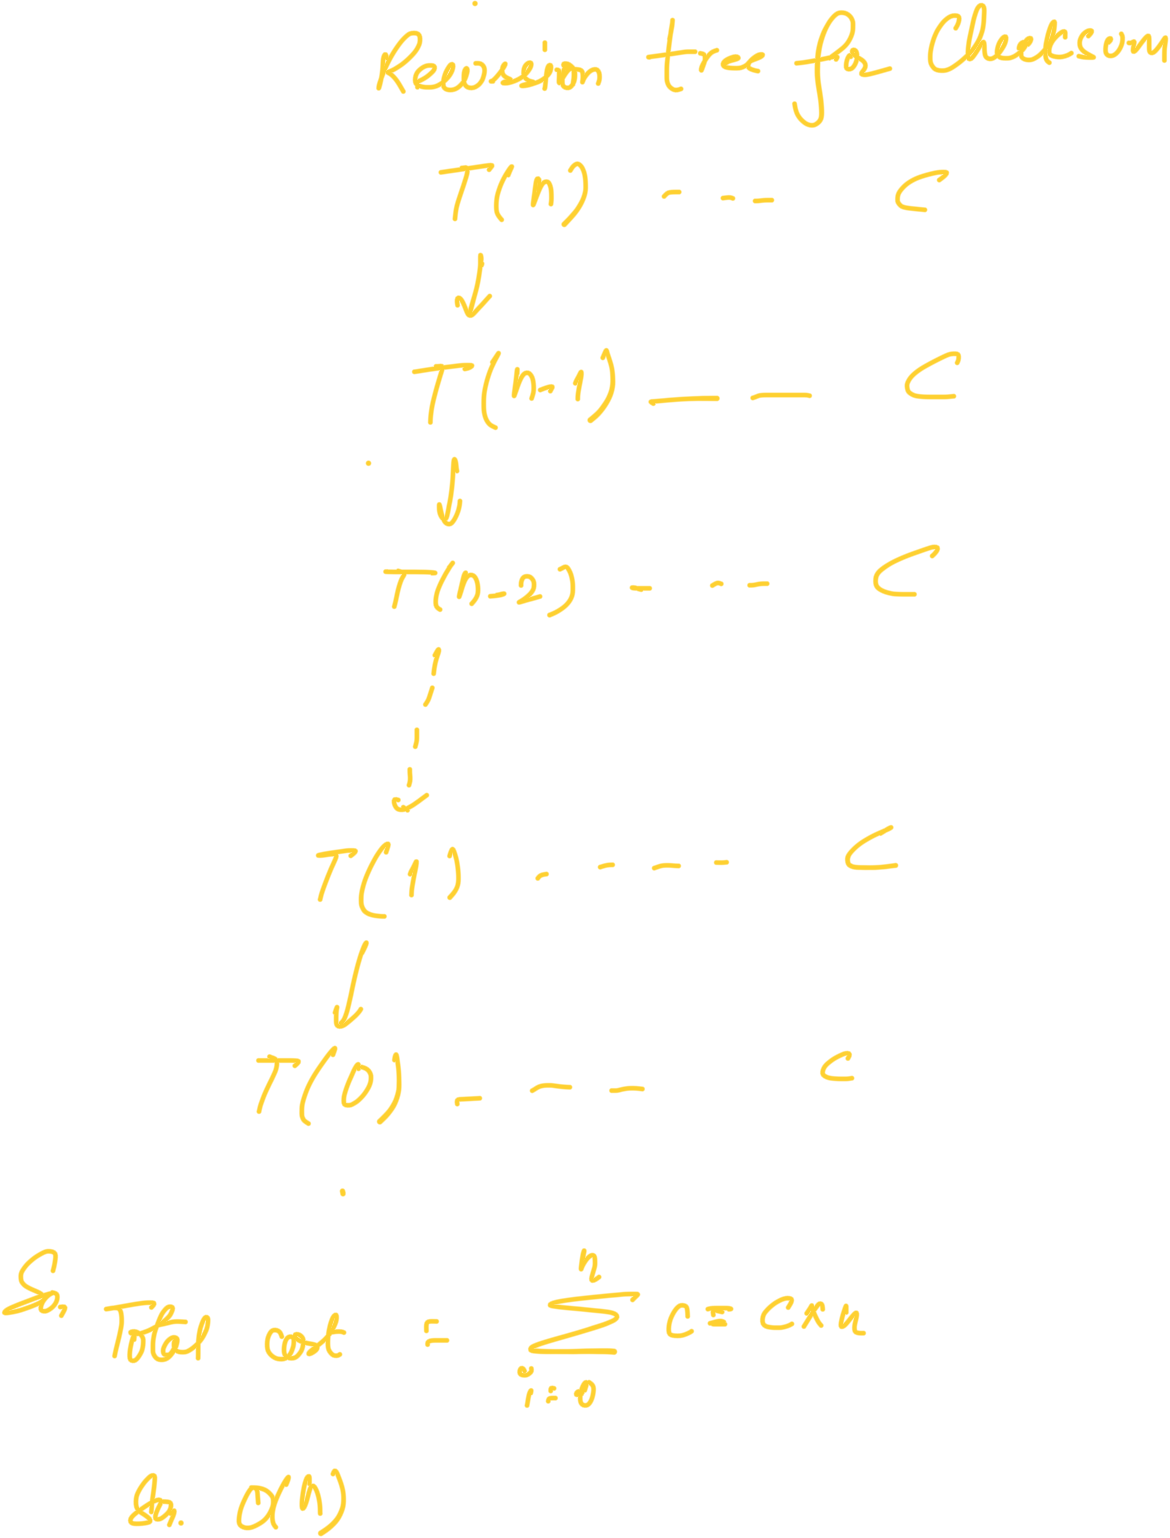 Recursion tree for Checksum
T(n) - - - C
↓
T(n-1) — — C
↓
T(n-2) - - - C
T(1) - - - - C
↓
T(0) - - - C
So, Total cost = \sum_{i=0}^{n} C = C x n
So. O(n)